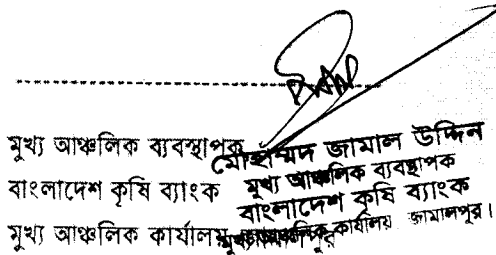 মুখ্য আঞ্চলিক ব্যবস্থাপক
বাংলাদেশ কৃষি ব্যাংক
মুখ্য আঞ্চলিক কার্যালয়
মোহাম্মদ জামাল উদ্দিন
মুখ্য আঞ্চলিক ব্যবস্থাপক
বাংলাদেশ কৃষি ব্যাংক
কার্যালয় জামালপুর।